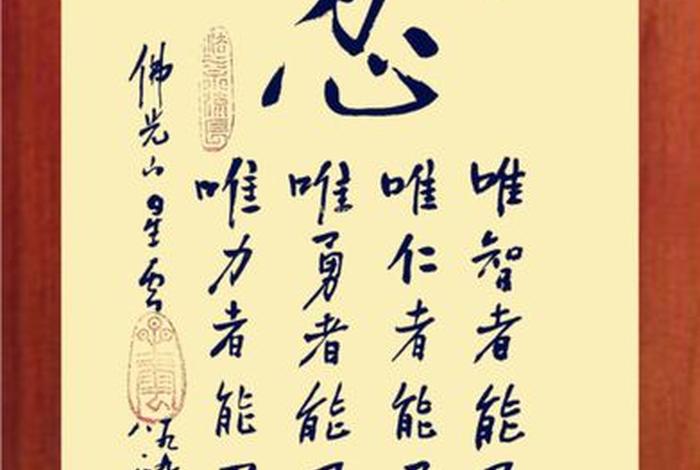 忍
唯智者能
唯仁者能
唯勇者能
唯力者能
佛光山星雲